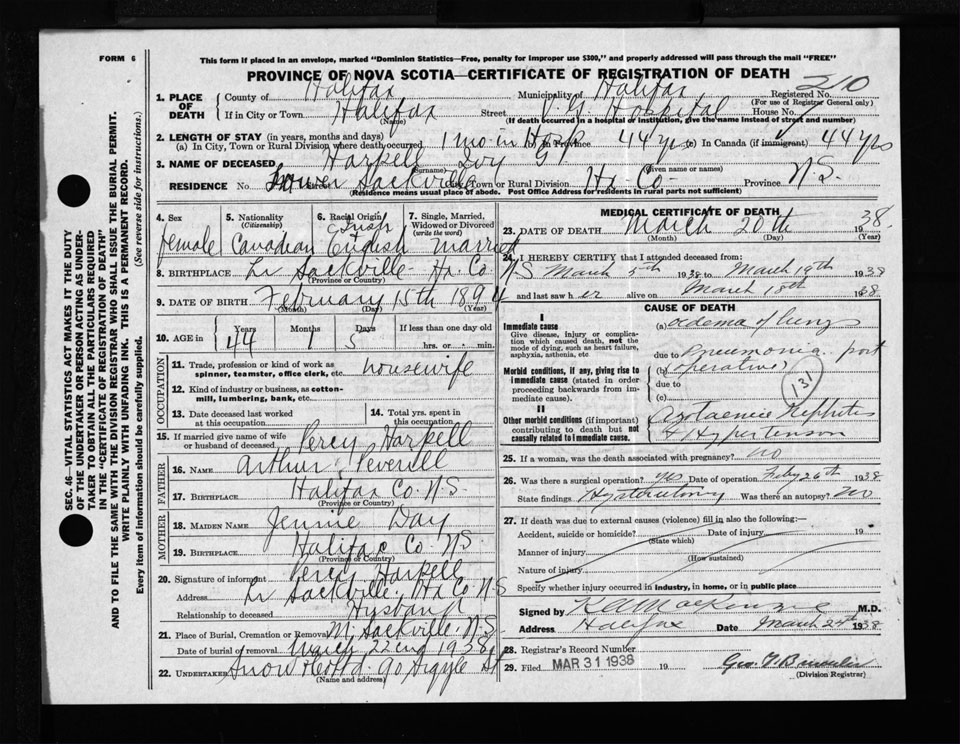 FORM 6
This form if placed in an envelope, marked "Dominion Statistics—Free, penalty for improper use $300," and properly addressed will pass through the mail "FREE"
PROVINCE OF NOVA SCOTIA—CERTIFICATE OF REGISTRATION OF DEATH
SEC. 46—VITAL STATISTICS ACT MAKES IT THE DUTY
OF THE UNDERTAKER OR PERSON ACTING AS UNDER-
TAKER TO OBTAIN ALL THE PARTICULARS REQUIRED
IN THE "CERTIFICATE OF REGISTRATION OF DEATH"
AND TO FILE THE SAME WITH THE DIVISION REGISTRAR WHO SHALL ISSUE THE BURIAL PERMIT.
WRITE PLAINLY WITH UNFADING INK. THIS IS A PERMANENT RECORD.
Every item of information should be carefully supplied. (See reverse side for instructions).
1. PLACE OF DEATH County of Halifax Municipality of Halifax Registered No. 310
(For use of Registrar General only)
If in City or Town Halifax Street V. G. Hospital House No.
(Name) (If death occurred in a hospital or institution, give the name instead of street and number)
2. LENGTH OF STAY (in years, months and days)
(a) In City, Town or Rural Division where death occurred 1 mo in Hosp (b) In Province 44 yrs (c) In Canada (if immigrant) 44 yrs
3. NAME OF DECEASED Harpell Ivy
(Surname) (Given name or names)
RESIDENCE No. Street Lower Sackville City, Town or Rural Division Hx Co Province N.S.
(Residence means usual place of abode. Post Office Address for residents in rural parts not sufficient)
4. Sex female
5. Nationality (Citizenship) Canadian
6. Racial Origin Irish & English
7. Single, Married, Widowed or Divorced (write the word) married
8. BIRTHPLACE Lr Sackville Hx. Co. N S
(Province or Country)
9. DATE OF BIRTH February 15th 1894
(Month) (Day) (Year)
10. AGE in Years 44 Months 1 Days 5 If less than one day old
hrs. or min.
OCCUPATION
11. Trade, profession or kind of work as spinner, teamster, office clerk, etc. housewife
12. Kind of industry or business, as cotton-mill, lumbering, bank, etc.
13. Date deceased last worked at this occupation
14. Total yrs. spent in this occupation
15. If married give name of wife or husband of deceased Percy Harpell
FATHER
16. NAME Arthur Peverill
17. BIRTHPLACE Halifax Co. N.S.
(Province or Country)
MOTHER
18. MAIDEN NAME Jennie Day
19. BIRTHPLACE Halifax Co. N.S.
(Province or Country)
20. Signature of informant Percy Harpell
Address Lr Sackville. Hx Co N.S
Relationship to deceased Husband
21. Place of Burial, Cremation or Removal M. Sackville. N.S.
Date of burial or removal March 22nd 1938
22. UNDERTAKER Snow &Co Ltd. 90 Argyle St
(Name and address)
MEDICAL CERTIFICATE OF DEATH
23. DATE OF DEATH March 20th 1938
(Month) (Day) (Year)
24. I HEREBY CERTIFY that I attended deceased from:
March 5th 1938 to March 19th 1938
and last saw her alive on March 18th 1938
CAUSE OF DEATH
I
Immediate cause
Give disease, injury or complication which caused death, not the mode of dying, such as heart failure, asphyxia, asthenia, etc
(a) oedema of lungs
due to Pneumonia. post
Morbid conditions, if any, giving rise to immediate cause (stated in order proceeding backwards from immediate cause).
(b) operative
due to
(c)
131
II
Other morbid conditions (if important) contributing to death but not causally related to immediate cause.
Nephritis
& Hypertension
25. If a woman, was the death associated with pregnancy? no
26. Was there a surgical operation? yes Date of operation Feby 26th 1938
State findings Hysterectomy Was there an autopsy? no
27. If death was due to external causes (violence) fill in also the following:—
Accident, suicide or homicide? Date of injury 19
(State which)
Manner of injury
(How sustained)
Nature of injury
Specify whether injury occurred in industry, in home, or in public place
Signed by MacKenzie M.D.
Address Halifax Date March 24th 1938
28. Registrar's Record Number
29. Filed MAR 31 1938 19
(Division Registrar)